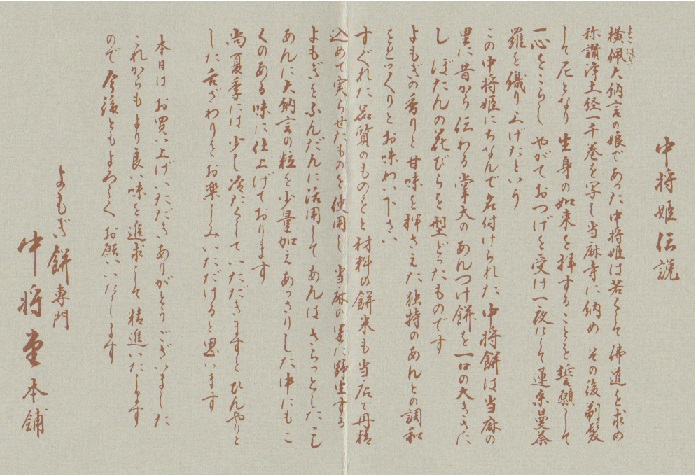 中将姫伝説
よこはぎ
横佩大納言の娘であった中将姫は若くして佛道を求め
称讃浄土経一千巻を写し当麻寺に納め その後剃髪
して尼となり 生身の如来を拝することを誓願して
一心をこらし やがておつげを受け一夜にして蓮糸曼荼
羅を織り上げたという
この中将姫にちなんで名付けられた 中将餅は当麻の
里に昔から伝わる 常夫のあんつけ餅を一口の大きさに
し ぼたんの花びらを型どったものです
よもぎの香りと甘味を押さえた独特のあんとの調和
をじっくりとお味わい下さい
すぐれた品質のものをと材料の餅米も当店で丹精
込めて実らせたものを使用し 当麻の里に野生する
よもぎをふんだんに活用して あんは さらっとしたこし
あんに大納言の粒を少量加え あっさりした中にもこ
くのある味に仕上げております
尚夏季には少し冷たくしていただきますとひんやと
した舌ざわりをお楽しみいただけると思います
本日は お買い上げいただき ありがとうございました
これからもより良い味を追求して精進いたします
ので 今後ともよろしく お願いいたします
よもぎ餅専門
中将堂本舗